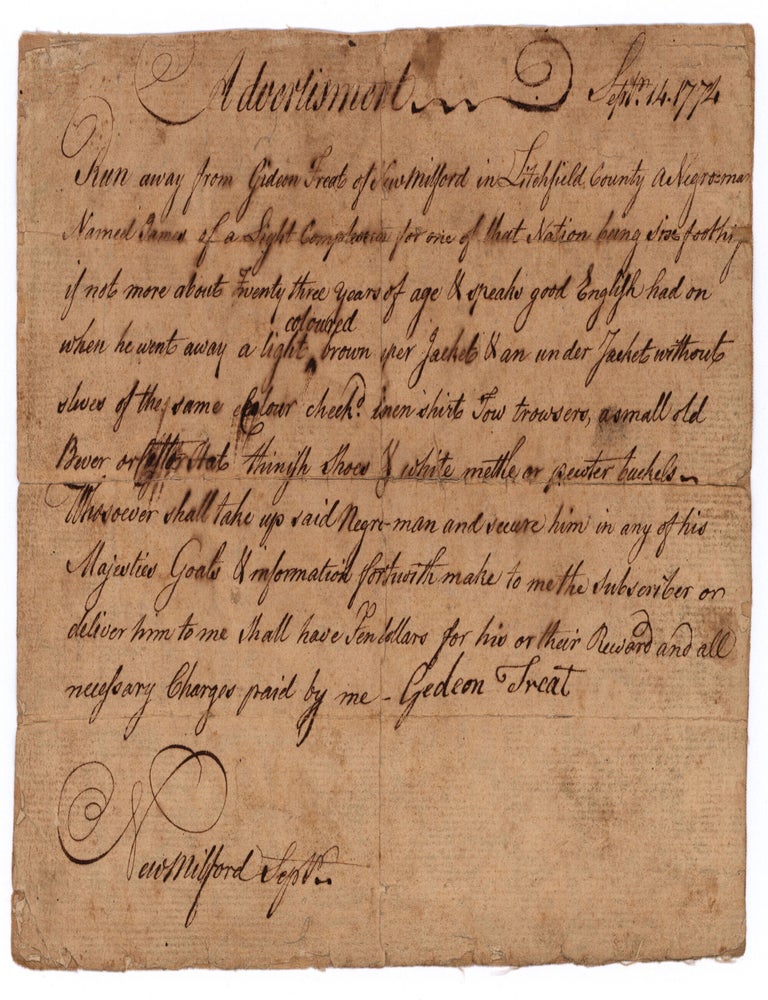 Advertisment Septr. 14. 1774
Run away from Gideon Treat of New Milford in Litchfield County a Negro-man
Named James of a Light Complexion for one of that Nation being six foot high
if not more about Twenty three years of age & speaks good English had on
coloured
when he went away a light brown uper Jacket & an under Jacket without
slives of the same Colour check'd linen shirt Tow trowsers, a small old
Bever or Hat thinish Shoes & white or pewter buckels
Whosoever shall take up said Negro-man and secure him in any of his
Majesties Goals & information fortwith make to me the Subscriber or
deliver him to me shall have Ten dollars for his or their Reward and all
necessary Charges paid by me - Gedeon Treat
New Milford Septr.